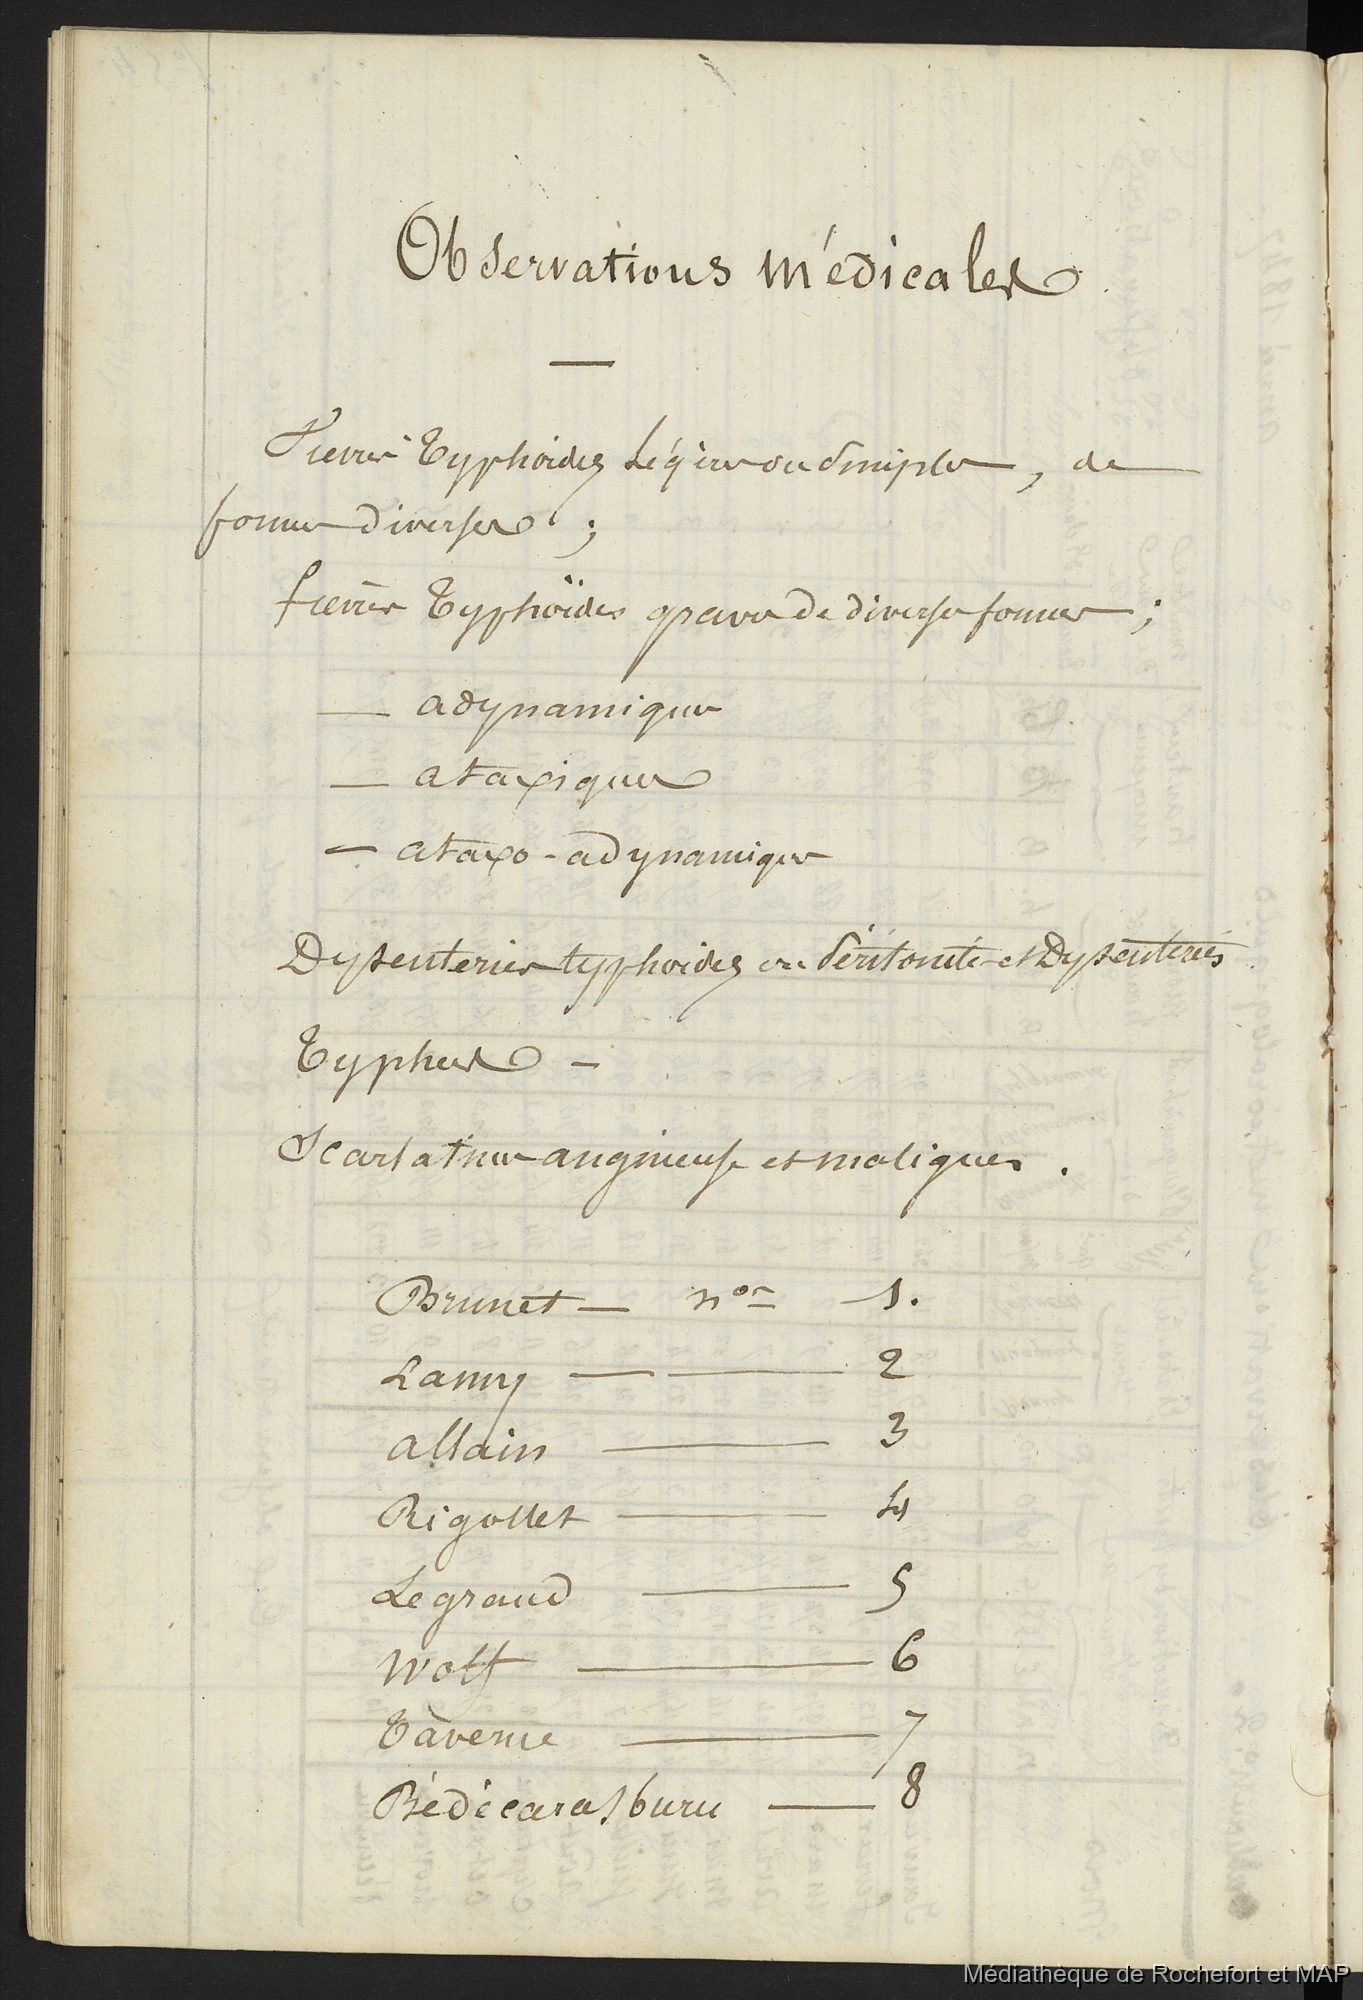 Observations médicales
—
Fievres typhoïdes légères ou simples, de
formes diverses ;
fièvres typhoïdes graves de diverses formes ;
— adynamiques
— ataxiques
— ataxo-adynamiques
Dysenteries typhoïdes ou et Dysenteries
Typhus —
Scarlatines angineuses et malignes .
Brunet — nos 1.
Lamy — — 2
Allain — 3
Rigollet — 4
Legrand — 5
Wolf — 6
Taverne — 7
Bédécarasburu — 8
Médiathèque de Rochefort et MAP